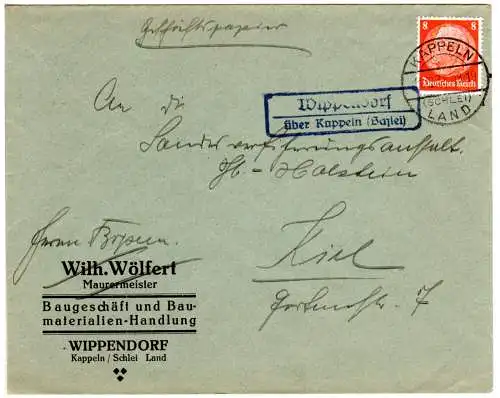 Geschäftspapier
8 8
Deutsches Reich
KAPPELN
(SCHLEI)
LAND
An die
Wippendorf
über Kappeln (Schlei)
Landesversicherungsanstalt.
Holstein
Herrn
Kiel
Wilh. Wölfert
Maurermeister
Baugeschäft und Bau-
materialien-Handlung
WIPPENDORF
Kappeln / Schlei Land
7